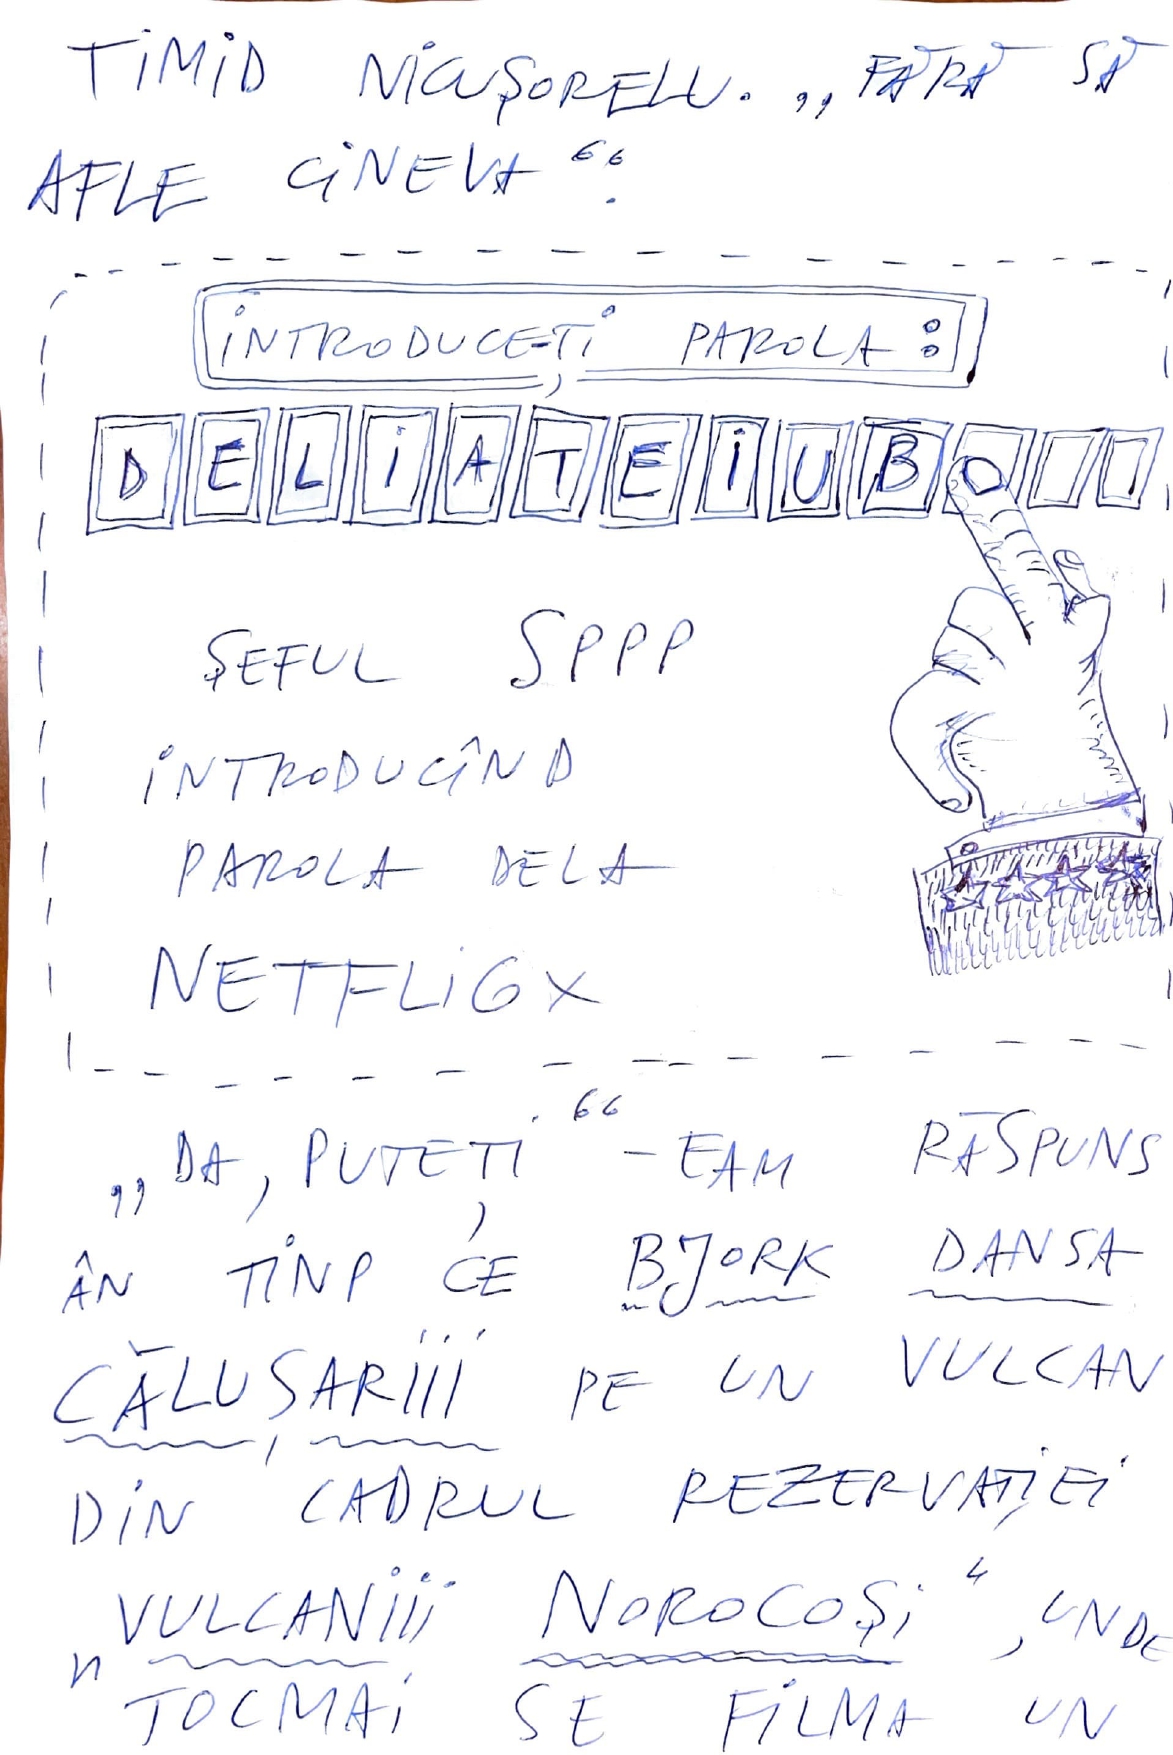 TIMID NICUȘORELU. „FĂRĂ SĂ
AFLE CINEVA“.
INTRODUCE-ȚI PAROLA:
DELIATEIUBO
ȘEFUL SPPP
INTRODUCÎND
PAROLA DELA
NETFLIGX
„DA, PUTEȚI“ - EAM RĂSPUNS
ÂN TINP CE BJORK DANSA
CĂLUȘARIII PE UN VULCAN
DIN CADRUL REZERVAȚIEI
„VULCANIII NOROCOȘI“, UNDE
TOCMAI SE FILMA UN